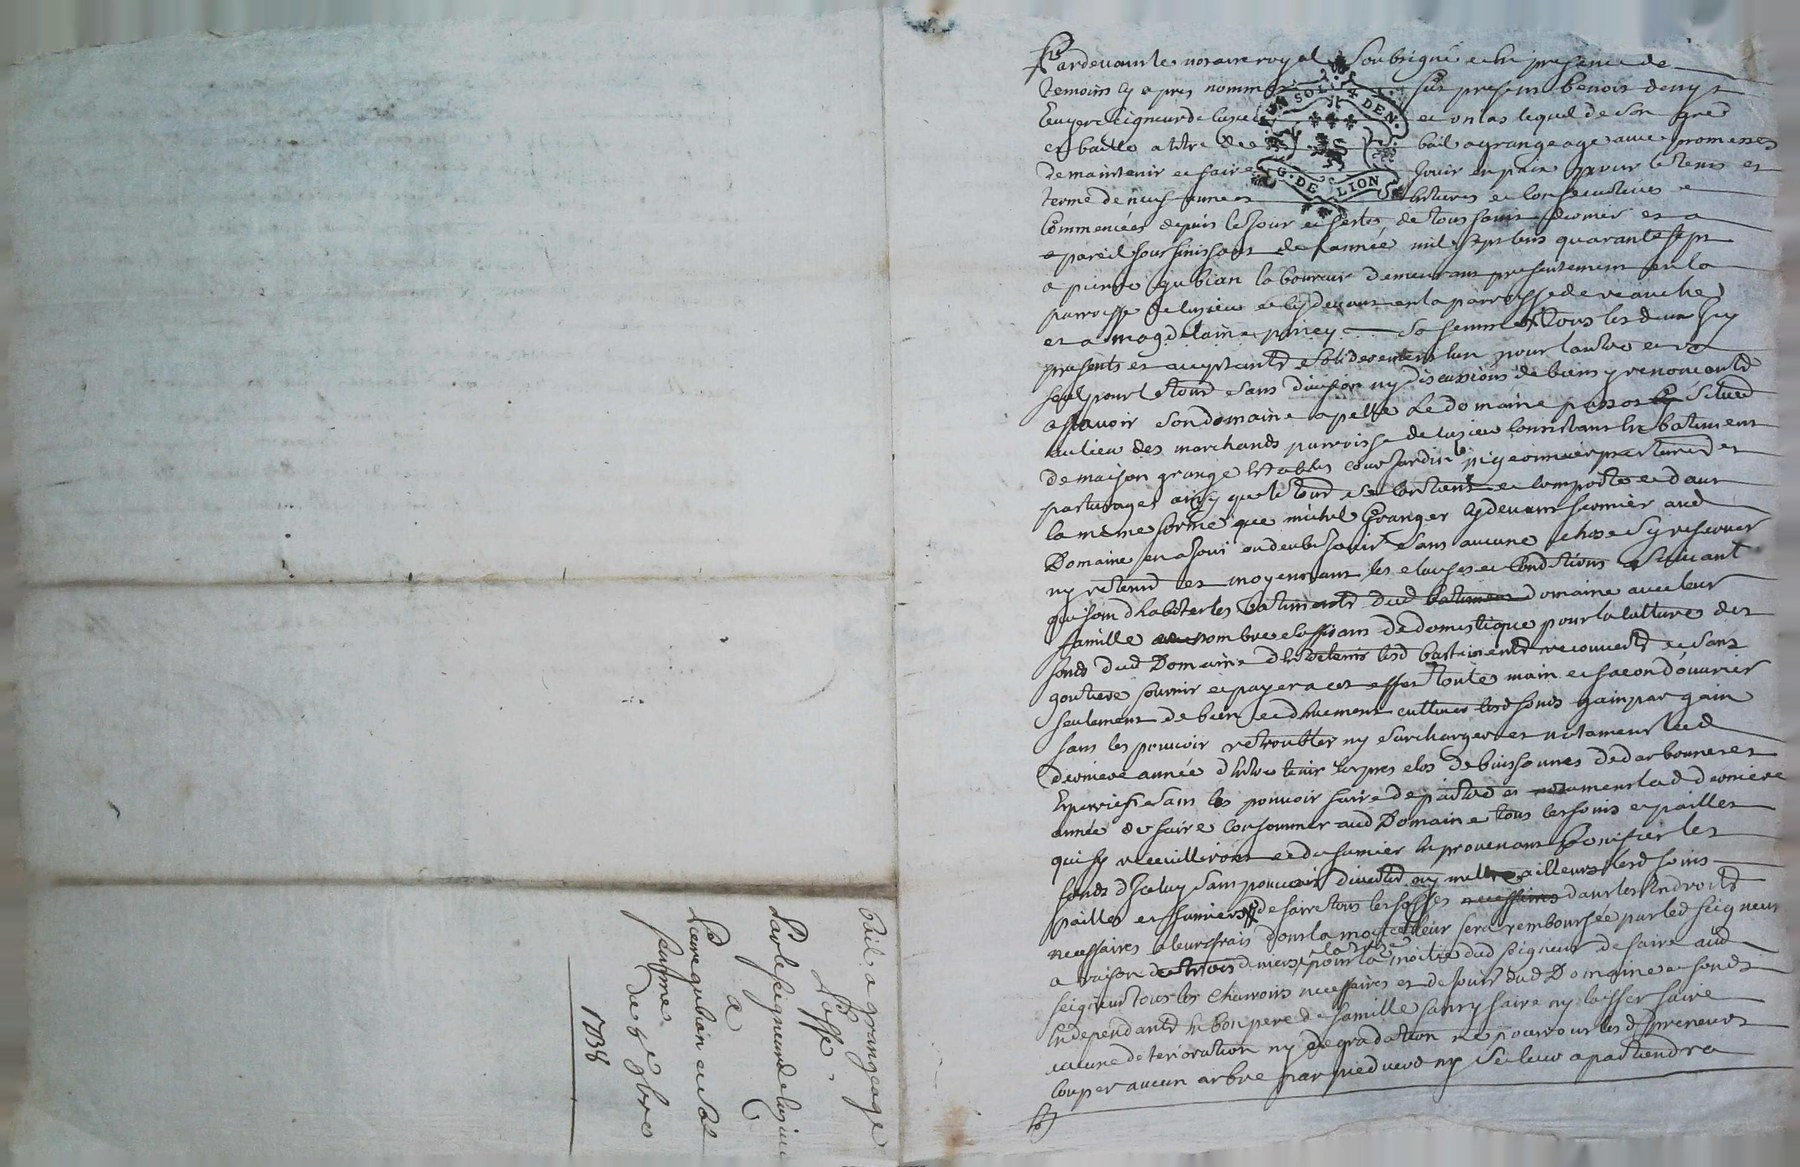 Pardevant le notaire royal Soubsigné et En presence de
temoins cy apres nommes fut present benoit denys
Escuyer seigneur de Cuzieu et Unias lequel de son gré
et baille a titre de bail a grangeage avec promesses
de maintenir et faire jouir en paix pour le tems et
terme de neuf années entieres et Consecutives
Commencées depuis le Jour et festes de toussaint dernier et a
a pareil jour finissant de l'année mil sept cens quarante sept
a pierre gubian laboureur demeurant presentement en la
parroisse de Cuzieu et cydevant en la parroisse de veauche
et a magdelaine piney sa femme tous les deux icy
presents et acceptants solidairement l'un pour l'autre et un
seul pour le tout sans division ny discussions de biens y renonçants
a sçavoir son domaine apellé Le domaine situé
au lieu des marchands parroisse de Cuzieu Consistant En batiment
de maison grange Estables cour Jardin pigeonnier et
pasturages ainsy que le tout se Contient et comporte et dans
la même forme que michel Granger cydevant fermier aud
Domaine en a joui ou deub jouir sans aucune chose sy reserver
ny retenir et moyennant les clauses et Conditions suivant
qui sont d'habiter les batiments dud domaine avec leur
famille nombre suffisant de domestique pour la culture des
fonds dud Domaine d'Entretenir lesd bastiments recouverts et sans
goutiere fournir et payer a cet effet toutes main et facon d'ouvrier
seulement de bien et duement cultiver lesd fonds gain par gain
sans les pouvoir retroubler ny surcharger et notament lad
derniere année d'Entretenir les pres clos de buissonnes
sans les pouvoir faire depaitre et notament lad derniere
année de faire consommer aud Domaine tous les foins et pailles
qui sy recueilliront et du fumier En provenant Bonifier les
fonds d'Iceluy sans pouvoir divertir ny mettre ailleurs lesd foins
pailles et fumiers de faire tous les fossés dans les Endroits
necessaires a leurs frais dont la moytié leur sera remboursée par led seigneur
a raison de trois deniers la toise pour la moitié dud seigneur de faire aud
seigneur tous les charrois necessaires et de jouir dud Domaine et fonds
Independants En bon pere de famille sans y faire ny laisser faire
aucune deterioration ny degradation ne pourront lesd preneurs
couper aucun arbre par pied verd ny sec leur apartiendra
EN SOL 4 DEN.
G. DE LION
Bail a grangeage
passé
Par le seigneur de Cuzieu
a
Pierre gubian et sa
femme
de 6e 9bre
1738